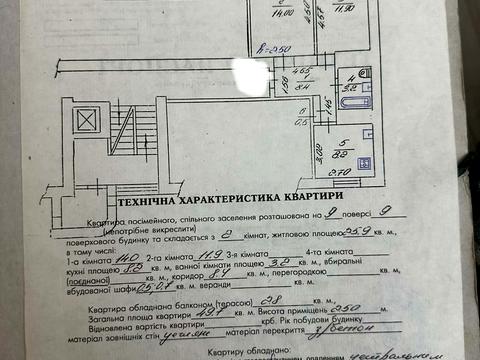 14.00
4.50
4.57
11.90
h=2.50
4.65
1
8.4
1.56
4
3.2
1.45
6
0.5
5
8.2
3.02
2.70
ТЕХНІЧНА ХАРАКТЕРИСТИКА КВАРТИРИ
Квартира посімейного, спільного заселення розташована на 9 поверсі 9
(непотрібне викреслити)
поверхового будинку та складається з 2 кімнат, житловою площею 25,9 кв. м.,
в тому числі:
1-а кімната 14.0 2-га кімната 11.9 3-я кімната 4-та кімната
кухні площею 8.2 кв. м, ванної кімнати площею 3,2 кв. м., вбиральні
(поєднаної) кв. м., коридор 8,4 кв. м., перегородкою кв. м.,
вбудованої шафи 0,5; 0.7 кв. м. веранди кв. м.
Квартира обладнана балконом (терасою) 0.8 кв. м.
Загальна площа квартири 49.7 кв. м. Висота приміщень 2.50 м.
Відновлена вартість квартири крб. Рік побудови будинку
матеріал зовнішніх стін матеріал перекриття з/бетон
Квартиру обладнано:
центральним